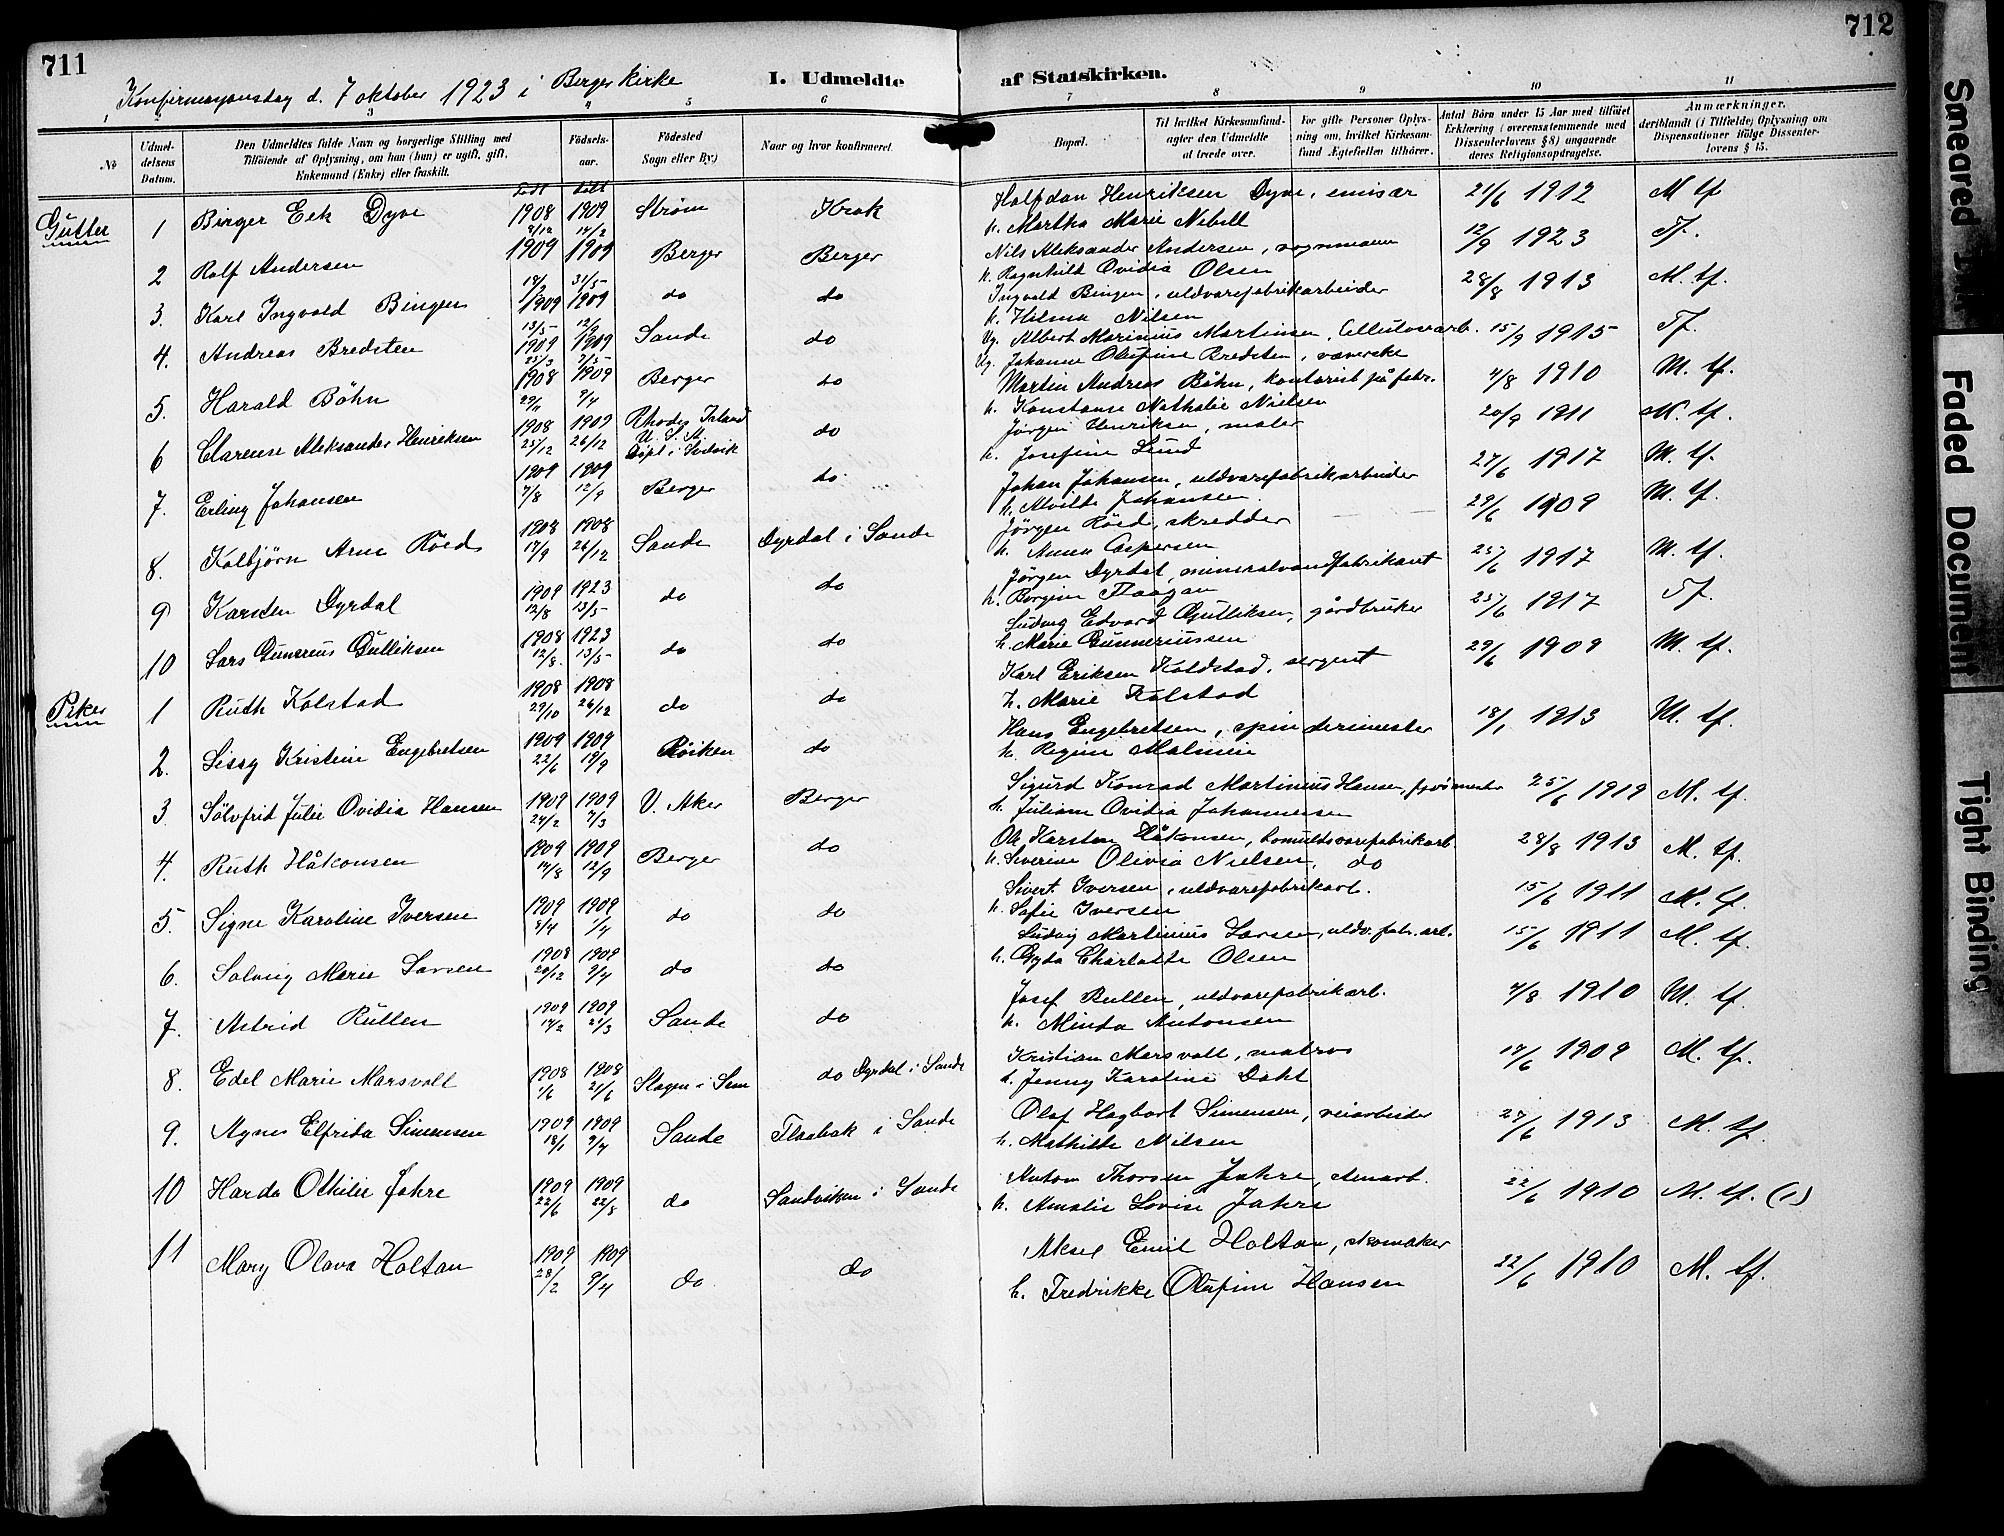 711
712
Konfirmasjonsdag d. 7 oktober 1923 i Berger kirke
I. Udmeldte af Statskirken.
1 3 4 5 6 7 8 9 10 11
No
Udmel-
delsens
Datum.
Den Udmeldtes fulde Navn og borgerlige Stilling med
Tilföiende af Oplysning, om han (hun) er ugift, gift,
Enkemand (Enke) eller fraskilt.
Födsels-
aar.
Födested
Sogn eller By)
Naar og hvor konfirmeret.
Bopæl.
Til hvilket Kirkesamfund-
agter den Udmeldte
at træde over.
For gifte Personer Oplys-
ning om, hvilket Kirkesam-
fund Ægtefællen tilhører.
Antal Börn under 15 Aar med tilföiet
Erklæring (overensstemmende med
Dissenterlovens § 8) angaaende
deres Religionsopdragelse.
Anmærkninger,
deriblandt (i Tilfælde) Oplysning om
Dispensationer ifölge Dissenter-
lovens § 15.
Född Döbt
Gutter 1 Birger Eek Dyve 1908 8/12 1909 14/2 Strøm Krok Halfdan Henriksen Dyve, emisær 21/6 1912 M tf
h. Martha Marie Nebell
2 Rolf Andersen 1909 1909 31/5 Berger Berger Nils Aleksander Andersen, vognmann 12/9 1923 Tf.
h. Ragnhild Ovidia Olsen
3. Karl Ingvald Bingen 1909 13/5 1909 12/9 do do Ingvald Bingen, uldvarefabrikarbeider 28/8 1913 M. tf.
h. Hilma Nilsen
4. Andreas Bredsten 1909 1909 2/5 Sande do Ug. Albert Marinius Martinsen, Cellulosearb. 15/9 1915 Tf.
Ug. Johanne Olufine Bredsten, væverske
5. Harald Böhn 1908 29/11 1909 9/4 Berger do Martin Andreas Böhn, kontorist på fabr. 4/8 1910 M. tf.
h. Konstanse Nathalie Nielsen
6 Clarense Aleksander Henriksen 1908 25/12 1909 26/12 Rhodes Island
U. S. A.
do Jörgen Henriksen, maler 20/9 1911 M. tf.
h. Josefine Lund
7. Erling Johansen 1909 7/8 1909 12/9 Berger do Johan Johansen, uldvarefabrikarbeider 27/6 1917 M. tf.
h. Alvilde Johansen
8. Kolbjörn Arne Röed 1908 17/9 1908 26/12 Sande Dyrdal i Sande Jörgen Röed, skredder 29/6 1909 M. tf.
h. Anna Caspersen
9 Karsten Dyrdal 1909 12/8 1923 13/5 do do Jörgen Dyrdal, mineralvandfabrikant 25/6 1917 M. tf.
h. Bergine Haagan
10 Lars Gunerius Gulliksen 1908 12/8 1923 13/5 do do Ludvig Edvard Gulliksen, gårdbruker 25/6 1917 Tf.
h. Marie Gunneriussen
Piker 1 Ruth Kolstad 1908 29/10 1908 26/12 do do Karl Eriksen Koldstad, sergent 29/6 1909 M. tf.
h. Marie Kolstad
2. Sissy Kristine Engebretsen 1909 22/6 1909 19/9 Röiken do Hans Engebretsen, spinderimester 18/1 1913 M. tf.
h. Regine Malmeie
3. Sölvfrid Julie Ovidia Hansen 1909 24/2 1909 7/3 V. Aker Berger Sigurd Konrad Martinius Hansen, 25/6 1919 M. tf.
h. Juliane Ovidia Johannesen
4. Ruth Håkonsen 1909 14/8 1909 12/9 Berger do Ole Karsten Håkonsen, bomuldsvarefabrikarb. 28/8 1913 M. tf.
h. Severine Olivia Nielsen, do
5. Signe Karoline Iversen 1909 1909 1/4 do do Sivert Iversen, uldvarefabrikarb. 15/6 1911 M. tf.
h. Sofie Iversen
6. Solveig Marie Larsen 1908 29/12 1909 9/4 do do Ludvig Martinius Larsen, uldv. fabr. arb. 15/6 1911 M. tf.
h. Gyda Charlotte Olsen
7. Astrid Rullen 1909 14/2 1909 21/3 Sande do Josef Rullen, uldvarefabrikarb. 4/8 1910 M. tf.
h. Minda Antonsen
8. Edel Marie Marsvoll 1908 1/6 1908 21/6 Slagen i Sem do Dyrdal i Sande Kristian Marsvoll, matros 14/6 1909 M. tf.
h. Jenny Karoline Dahl
9. Agnes Elfrida Simensen 1909 18/1 1909 9/4 Sande Flaabak i Sande Olaf Hagbart Simensen, veiarbeider 27/6 1913 M. tf.
h. Mathilde Nilsen
10 Harda Othilie Jahre 1909 22/6 1909 22/8 do Sandviken i Sande Anton Thorsen Jahre, stenarb. 22/6 1910 M. tf. (1)
h. Amalie Lovise Jahre
11 Mary Olava Holtan 1909 28/2 1909 9/4 do do Aksel Emil Holtan, skomaker 22/6 1910 M. tf.
h. Fredrikke Olufine Hansen
Smeared
Faded Document
Tight Binding